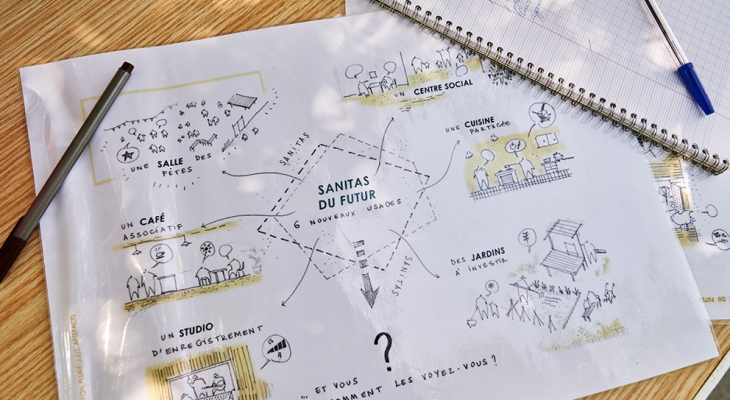 UN CENTRE SOCIAL
UNE CUISINE
PARTAGÉE
UNE SALLE
DES
FÊTES
SANITAS
SANITAS
DU FUTUR
6 NOUVEAUX USAGES
SANITAS
UN CAFÉ
ASSOCIATIF
DES JARDINS
À INVESTIR
UN STUDIO
D'ENREGISTREMENT
?
... ET VOUS
COMMENT LES VOYEZ-VOUS?